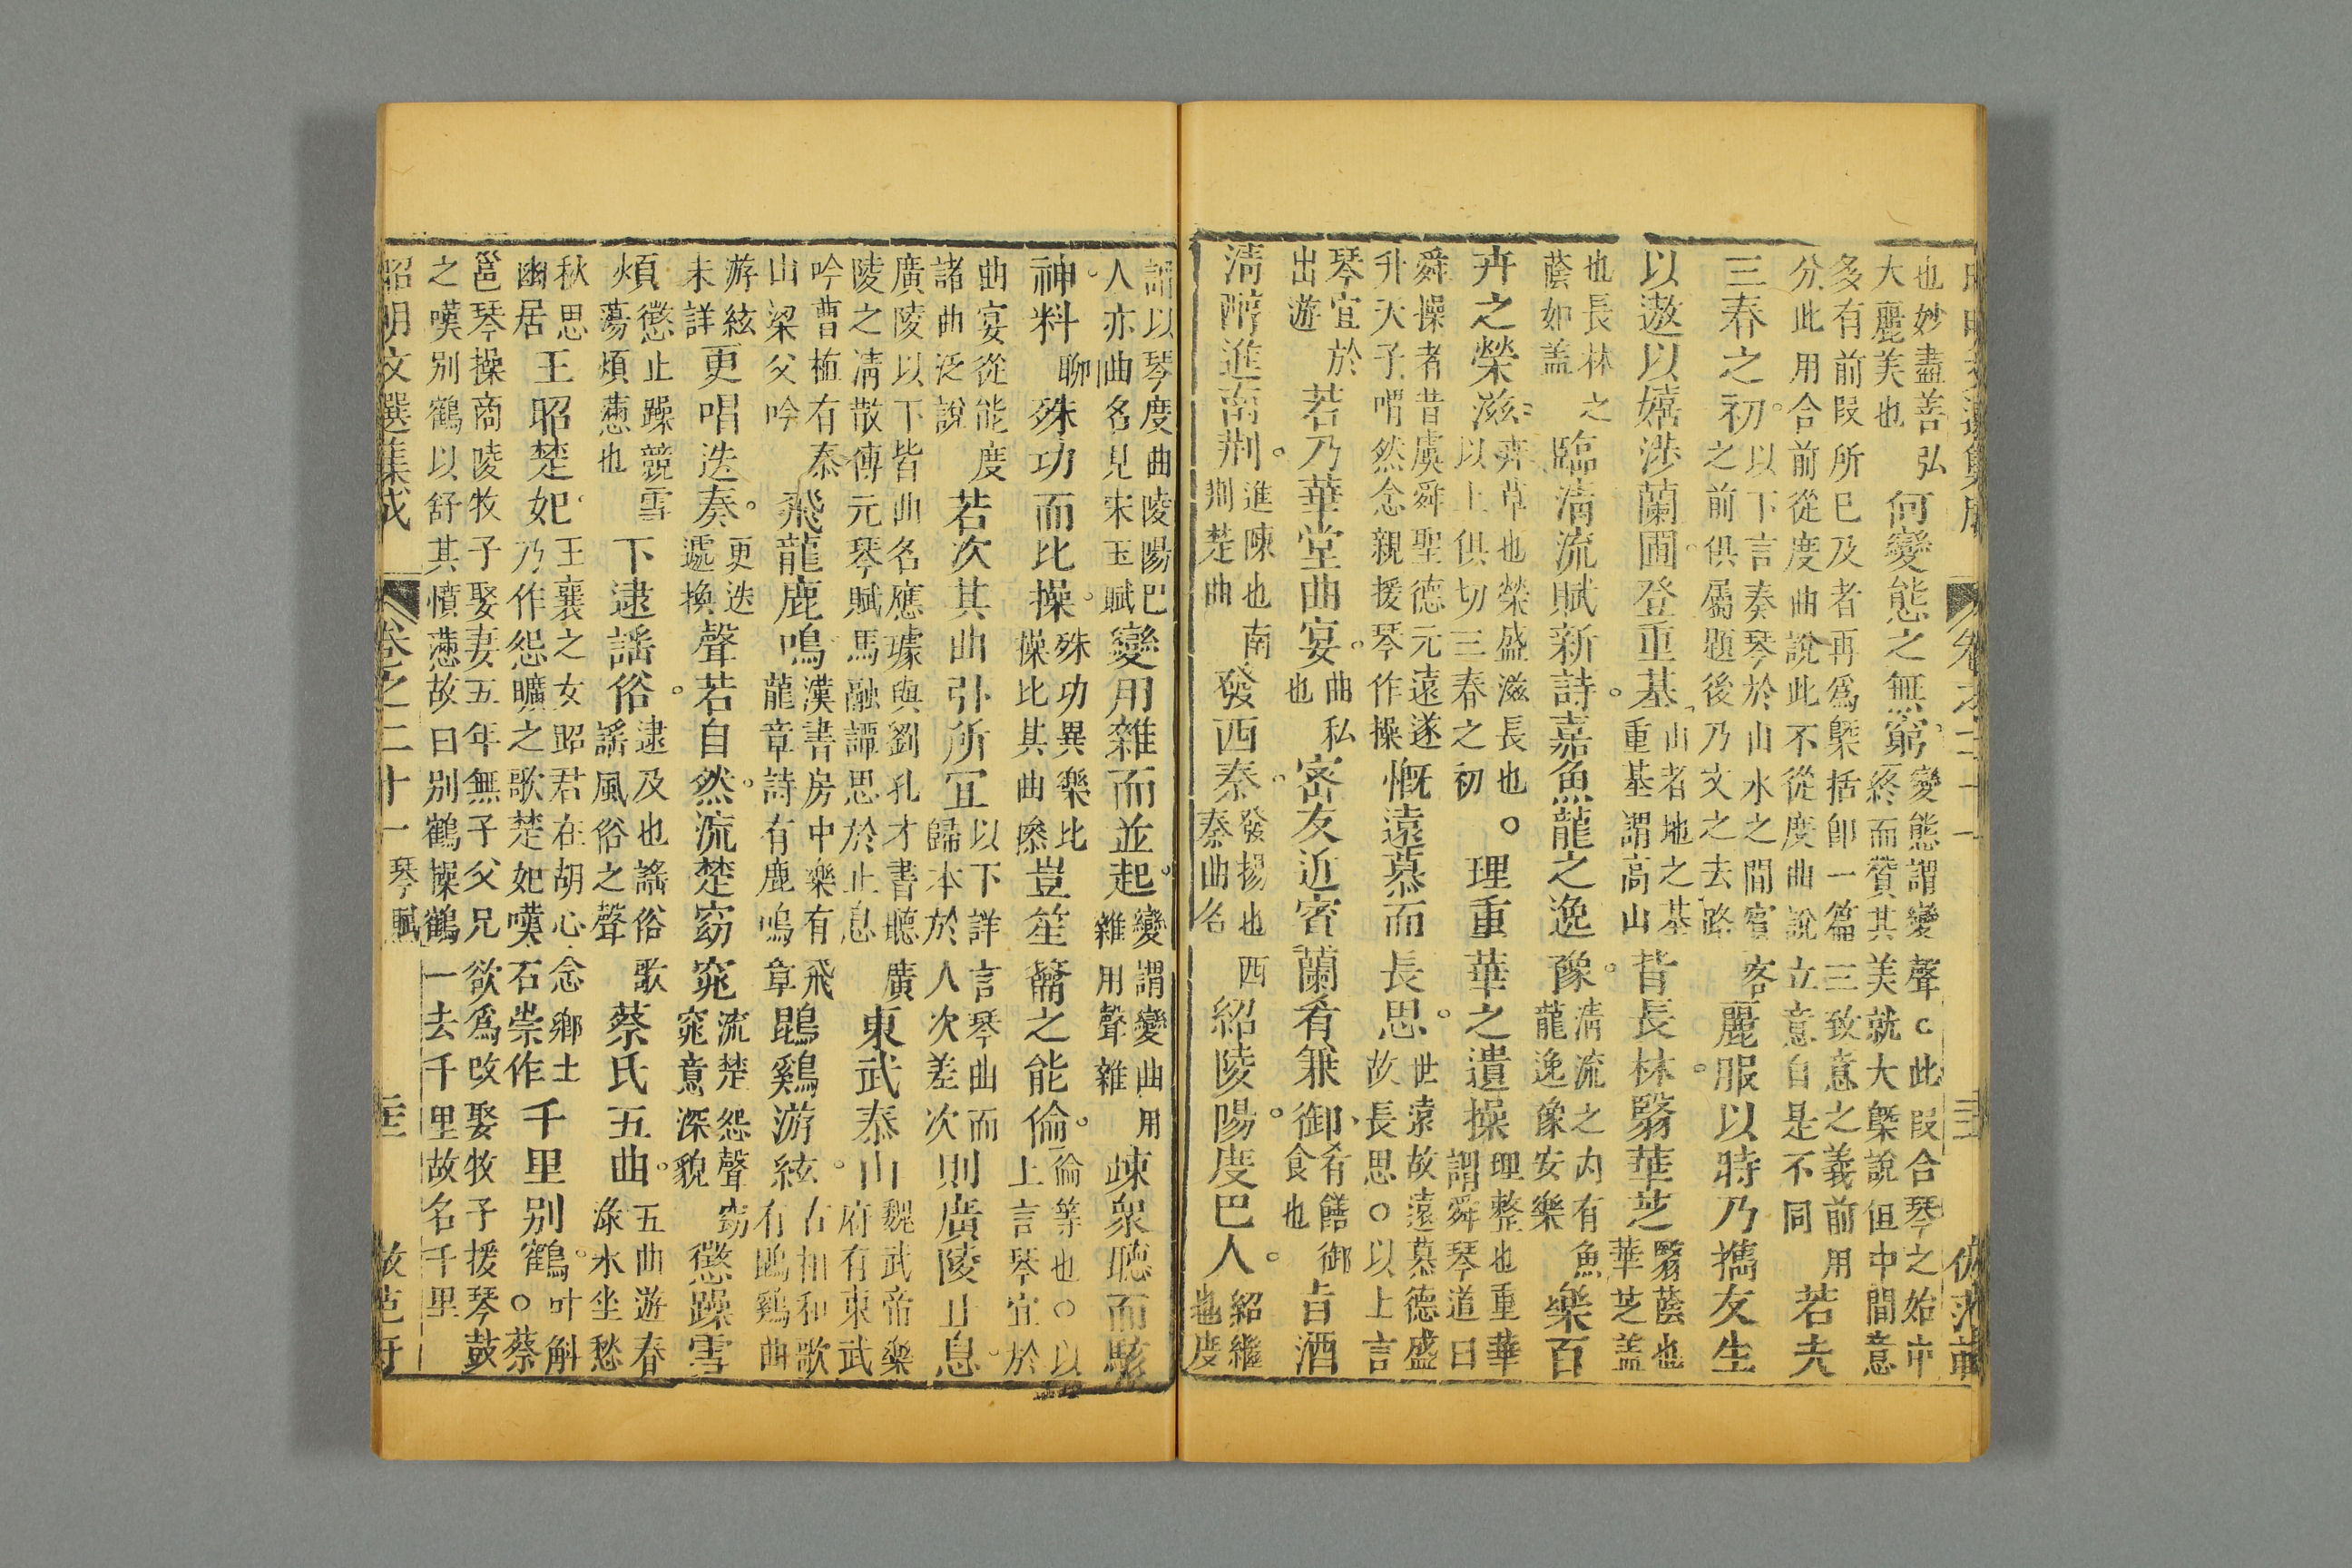 也妙盡善弘大麗美也何變態之無窮。變態謂變聲。此叚合琴之始中終而贊其美就大槩說但中間意
多有前叚所已及者再爲槩括卽一篇三致意之義前用分此用合前從度曲說此不從度曲說立意自是不同若夫
三春之初。以下言奏琴於山水之間賓客之前俱屬題後乃文之去路麗服以時乃攜友生
以遨以嬉涉蘭圃。登重基、山者地之基重基謂高山背長林。翳華芝翳蔭也華芝盖
也長林之蔭如盖臨淸流賦新詩。嘉魚龍之逸豫。淸流之内有魚龍逸豫安樂樂百
卉之榮滋卉草也榮盛滋長也以上俱切三春之初。理重華之遺操理整也重華謂舜琴道曰
舜操者昔虞舜聖德元遠遂升天子喟然念親援琴作操慨遠慕而長思。世遠故遠慕德盛故長思○以上言
琴宜於出遊若乃華堂曲宴。曲私也密友近賓蘭肴兼御、肴饍御食也旨酒
淸醇進南荆。進陳也南荆楚曲發西秦。發揚也西秦曲名紹陵陽。度巴人。紹繼也度
謂以琴度曲陵陽巴人亦曲名見宋玉賦變用雜而並起。變謂變曲用雜用聲雜竦衆聽而駭
神。料聊殊功而比操。殊功異樂比操比其曲操豈笙籥之能倫。倫等也○以上言琴宜於
曲宴從能度諸曲泛說若次其曲引所宜以下詳言琴曲而歸本於人次差次則廣陵止息。
廣陵以下皆曲名應璩與劉孔才書聽廣陵之淸散傅元琴賦馬融譚思於止息東武泰山。魏武帝樂府有東武
吟曹植有泰山梁父吟飛龍鹿鳴漢書房中樂有飛龍章詩有鹿鳴章鵾鷄游絃。古相和歌有鵾鷄曲
游絃未詳更唱迭奏。更迭遞換聲若自然。流楚窈窕流楚怨聲窈窕意深貌懲躁雪
煩懲止躁競雪蕩煩懣也下逮謡俗。逮及也謡俗歌謡風俗之聲蔡氏五曲。五曲遊春淥水坐愁
秋思幽居王昭楚妃。王襄之女昭君在胡心念鄉土乃作怨曠之歌楚妃嘆石崇作千里别鶴。叶斛○蔡
邕琴操商陵牧子娶妻五年無子父兄欲爲改娶牧子援琴鼓之嘆别鶴以舒其憤懣故曰别鶴操鶴一去千里故名千里
昭明文選集成 卷之二十一 琴賦